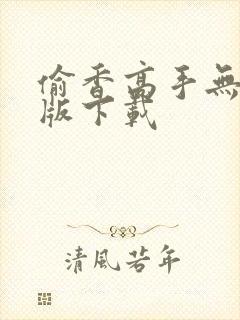 偷香高手無
版下載
清風若年